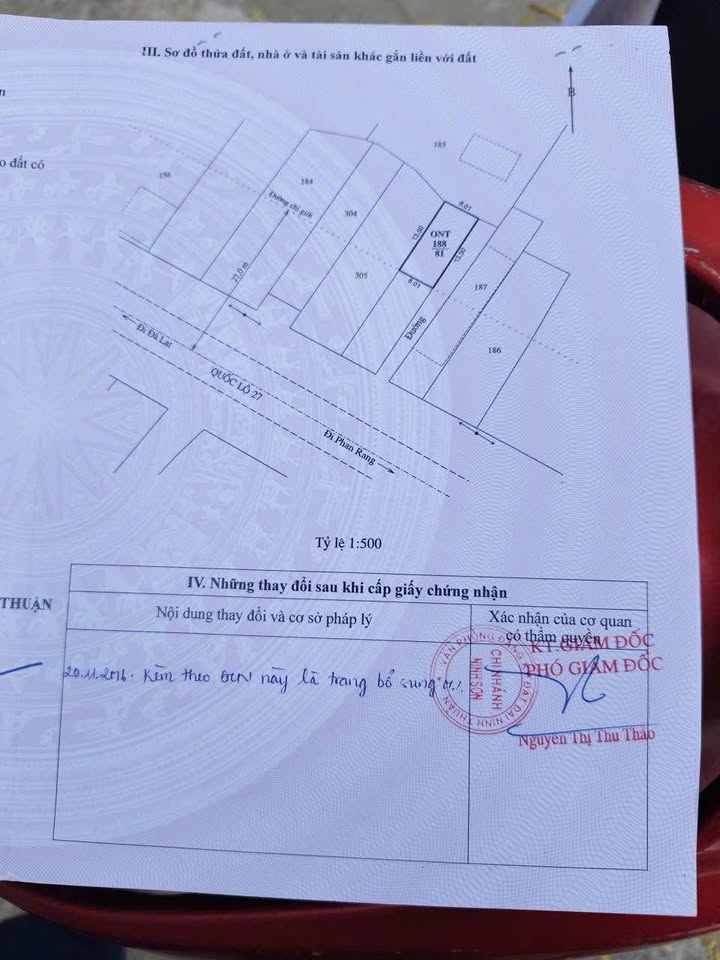 III. Sơ đồ thửa đất, nhà ở và tài sản khác gắn liền với đất
B
o đất có
185
156
184
Đường chỉ giới
304
6.01
13.50
ONT
188
81
13.50
305
6.01
27,0 m
187
Đường
186
Đi Đà Lạt
QUỐC LỘ 27
Đi Phan Rang
Tỷ lệ 1:500
THUẬN
IV. Những thay đổi sau khi cấp giấy chứng nhận
Nội dung thay đổi và cơ sở pháp lý
Xác nhận của cơ quan
có thẩm quyền
KT.GIÁM ĐỐC
PHÓ GIÁM ĐỐC
20.11.2016. Kèm theo GCN này là trang bổ sung 01.
VĂN PHÒNG ĐĂNG KÝ ĐẤT ĐAI NINH THUẬN
CHI NHÁNH
NINH SƠN
Nguyễn Thị Thu Thảo